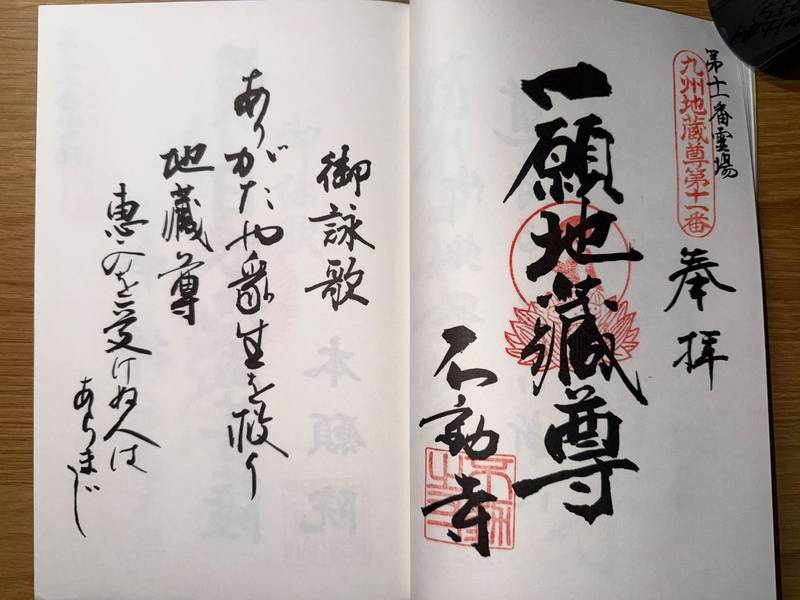 第十一番霊場
九州地蔵尊第十一番
奉拝
一願地蔵尊
不動寺
御詠歌
ありがたや衆生を救う
地蔵尊
恵みを受けぬ人は
あらまじ
本願院